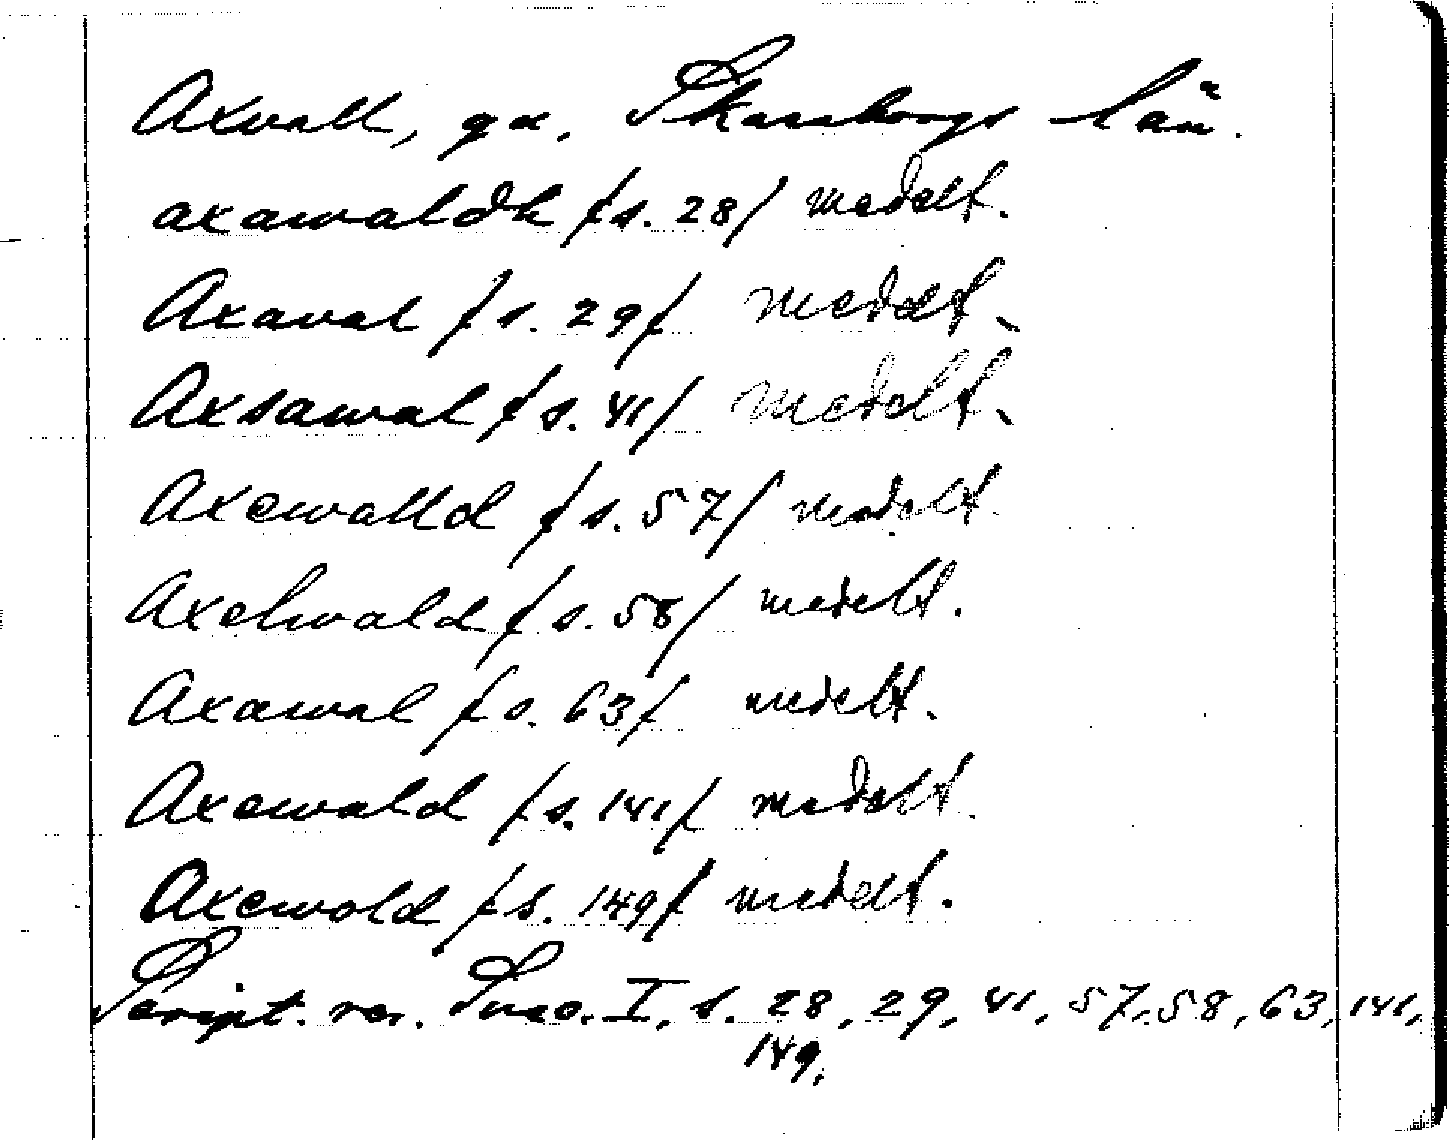 Axvall, gd, Skaraborgs län.
axawaldh /s. 28/ medelt.
Axaval /s. 29/ medelt.
Axsawal /s. 41/ medelt.
Axewalld /s. 57/ medelt.
Axelwald /s. 58/ medelt.
Axawal /s. 63/ medelt.
Axewald /s. 141/ medelt.
Axewold /s. 149/ medelt.
Script. rer. Suec. I, s. 28, 29, 41, 57, 58, 63, 141,
149.